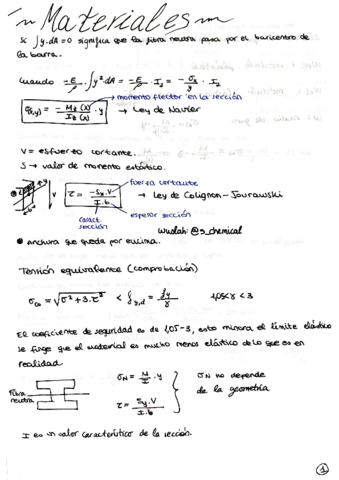 Materiales
Si ∫y.dA=0 significa que la fibra neutra pasa por el baricentro de
la barra.
Cuando -E/ρ . ∫y²dA = -E/ρ . Iz = -σx/y . Iz
→ momento flector en la sección
σ(x,y) = - Mz(x)/Iz(x) . y → Ley de Navier
V = esfuerzo cortante.
S → valor de momento estático.
fuerza cortante
τ = -Sy.V/I.b → Ley de Colignon-Jourawski
caract. sección
espesor sección
wuolah: @s_chemical
• anchura que queda por encima.
Tensión equivalente (comprobación)
σco = √σ²+3.τ² < fy,d = fy/γ 1,05<γ<3
El coeficiente de seguridad es de 1,05-3, esto minora el límite elástico
se finge que el material es mucho menos elástico de lo que es en
realidad.
fibra neutra
σN = M/I . y
τ = Sy.V/I.b
σN no depende
de la geometría
I es un valor característico de la sección.
1